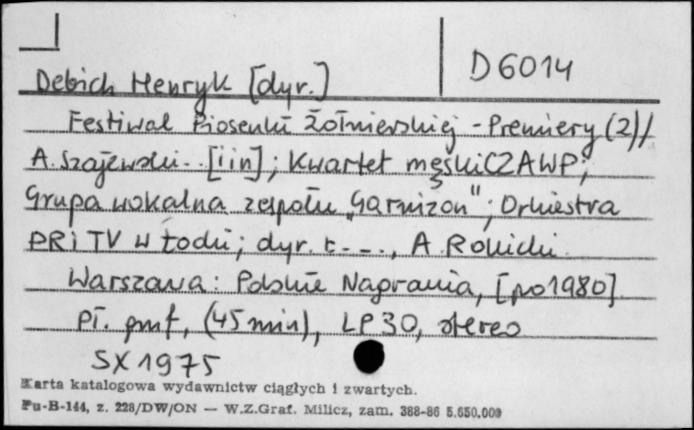 D 6014
Debich Henryk [dyr.]
Festiwal Piosenki Żołnierskiej - Premiery (2) /
A. Szajewski.. [i in]; Kwartet męski CZAWP;
Grupa wokalna zespołu "Garnizon"; Orkiestra
PR i TV w Łodzi; dyr. t. - - -, A. Rokicki.
Warszawa: Polskie Nagrania, [po 1980].
Pł. gmf, (45 min), LP 30, stereo
SX 1975
Karta katalogowa wydawnictw ciągłych i zwartych.
Pu-B-144, z. 228/DW/ON — W.Z.Graf. Milicz, zam. 388-86 5.650.000